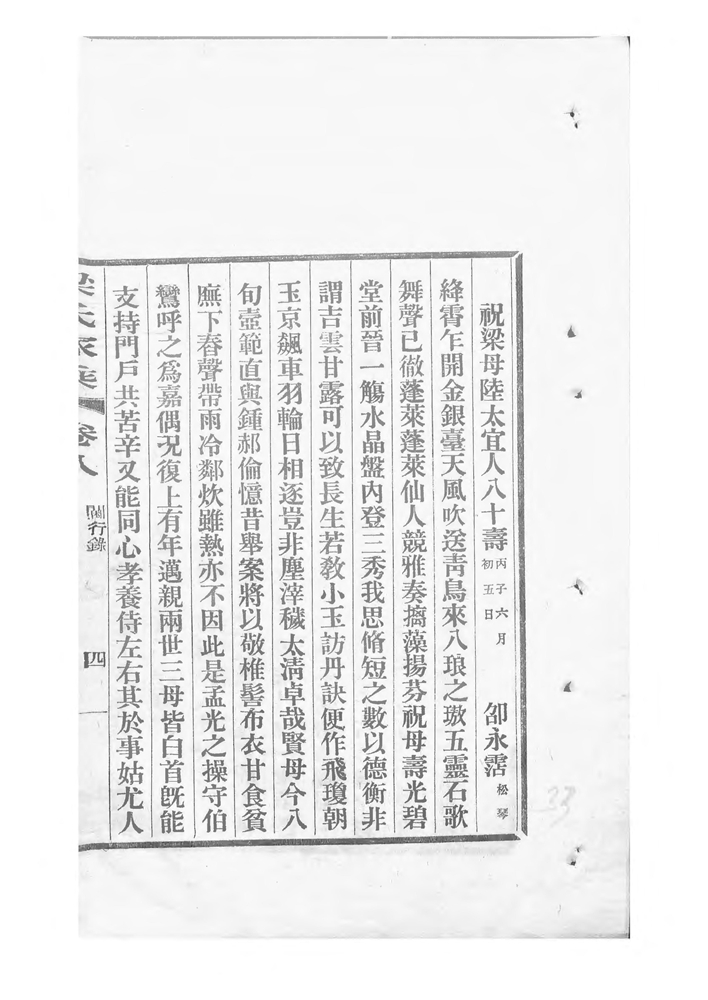 祝梁母陸太宜人八十壽 丙子六月初五日 邵永霑 松琴
絳霄乍開金銀臺天風吹送靑鳥來八琅之璈五靈石歌
舞聲已徹蓬萊蓬萊仙人競雅奏摛藻揚芬祝母壽光碧
堂前晉一觴水晶盤內登三秀我思脩短之數以德衡非
謂吉雲甘露可以致長生若敎小玉訪丹訣便作飛瓊朝
玉京飆車羽輪日相逐豈非塵滓穢太淸卓哉賢母今八
旬壼範直與鍾郝倫憶昔舉案將以敬椎髻布衣甘食貧
廡下舂聲帶雨冷鄰炊雖熱亦不因此是孟光之操守伯
鸞呼之爲嘉偶況復上有年邁親兩世三母皆白首旣能
支持門戶共苦辛又能同心孝養侍左右其於事姑尤人
梁氏家乘 卷八 閫行錄 四
33